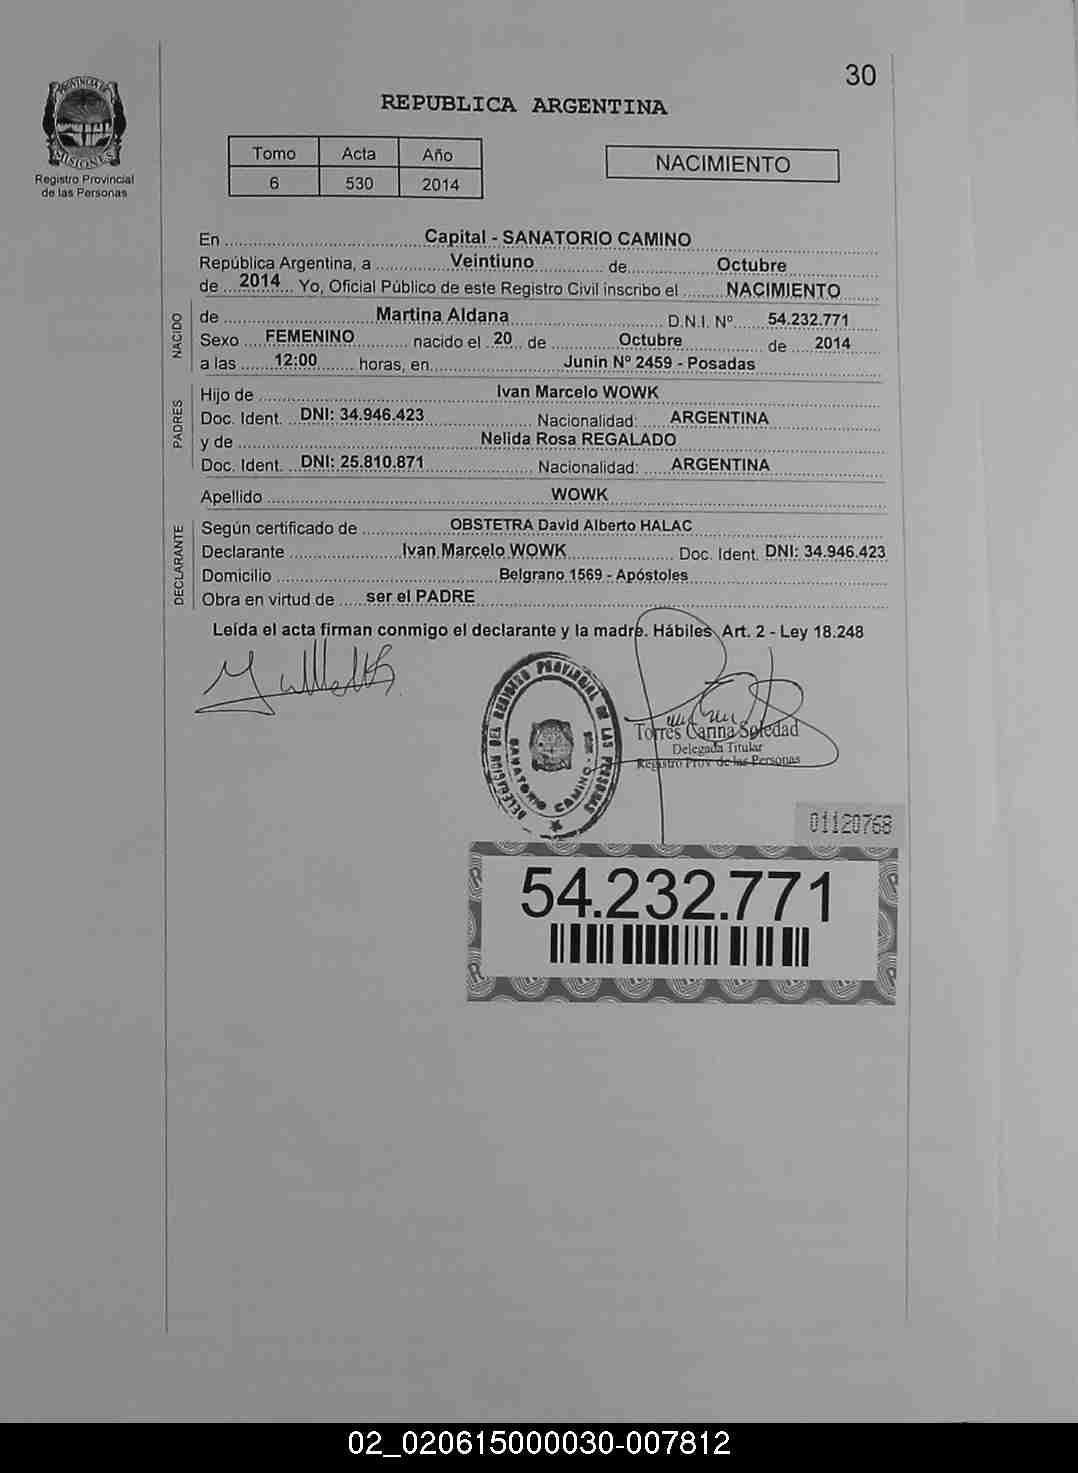 30
REPUBLICA ARGENTINA
PROVINCIA DE
MISIONES
Registro Provincial
de las Personas
Tomo Acta Año
6 530 2014
NACIMIENTO
En Capital - SANATORIO CAMINO
República Argentina, a Veintiuno de Octubre
de 2014 Yo, Oficial Público de este Registro Civil inscribo el NACIMIENTO
NACIDO
de Martina Aldana D.N.I. Nº 54.232.771
Sexo FEMENINO nacido el 20 de Octubre de 2014
a las 12:00 horas, en Junin Nº 2459 - Posadas
PADRES
Hijo de Ivan Marcelo WOWK
Doc. Ident. DNI: 34.946.423 Nacionalidad: ARGENTINA
y de Nelida Rosa REGALADO
Doc. Ident. DNI: 25.810.871 Nacionalidad: ARGENTINA
Apellido WOWK
DECLARANTE
Según certificado de OBSTETRA David Alberto HALAC
Declarante Ivan Marcelo WOWK Doc. Ident. DNI: 34.946.423
Domicilio Belgrano 1569 - Apóstoles
Obra en virtud de ser el PADRE
Leída el acta firman conmigo el declarante y la madre. Hábiles Art. 2 - Ley 18.248
DELEGACION DEL REGISTRO PROVINCIAL DE LAS PERSONAS
SANATORIO CAMINO
Torres Carina Soledad
Delegada Titular
Registro Prov. de las Personas
01120768
54.232.771
02_020615000030-007812